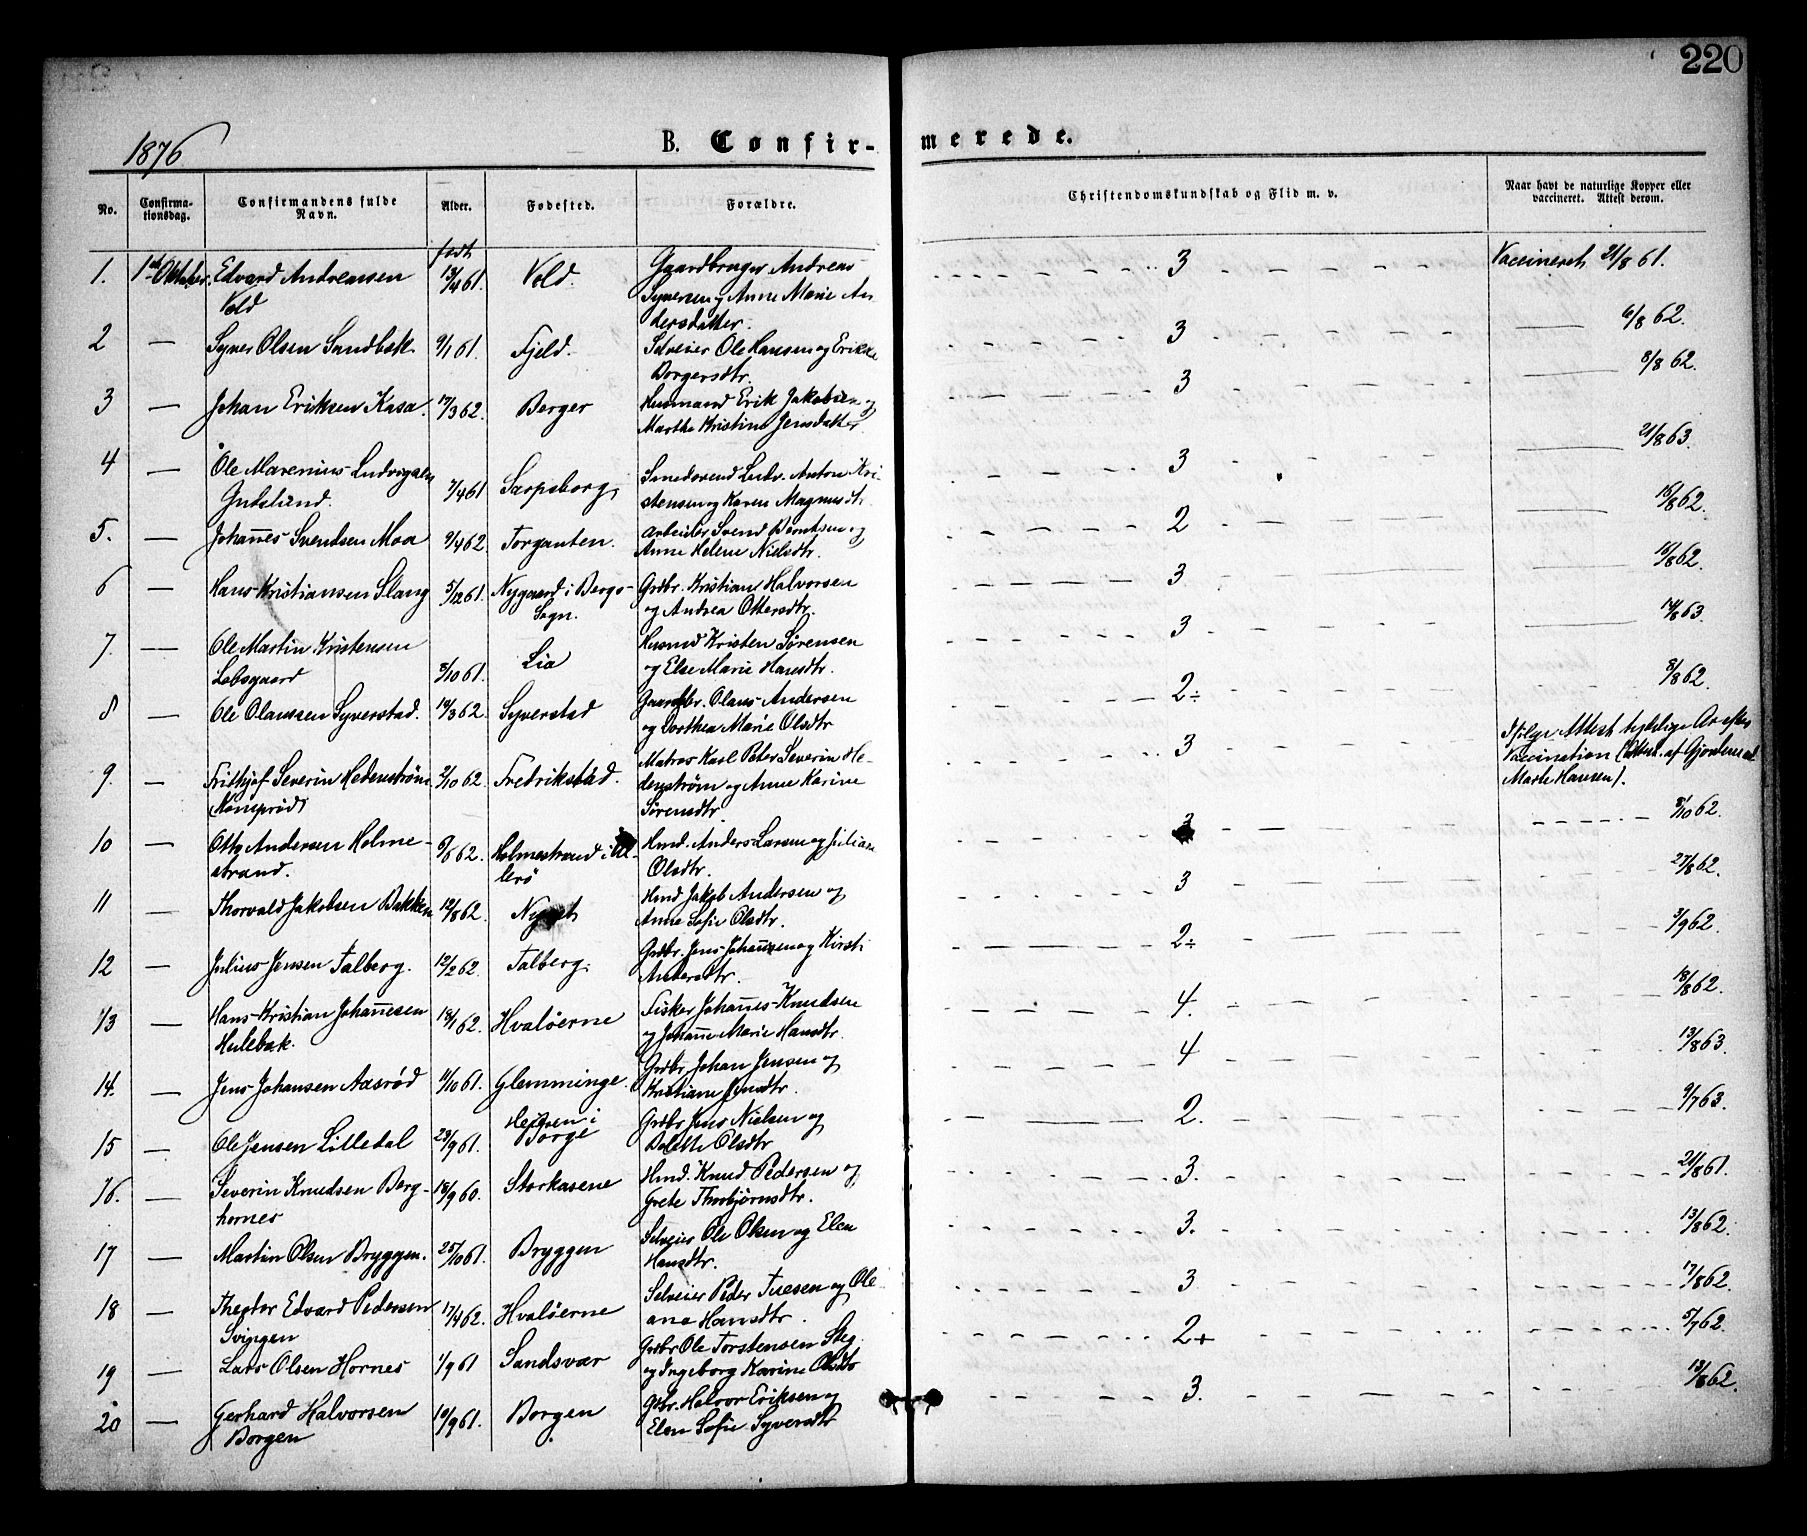 220
1876
B. Confir-merede.
No. Confirma-tionsdag. Confirmandens fulde Navn. Alder. Fødested. Forældre. Christendomskundskab og Flid m. v. Naar havt de naturlige Kopper eller vaccineret. Attest derom.
født
1. 1ste Oktober. Edvard Andreassen 13/4 61. Vold. Gaardbruger Andreas 3 Vaccineret 21/8 61.
Vold Syversen og Anne Marie An-
dersdatter.
2 — Syver Olsen Sandbæk 9/1 61. Fjeld. Selveier Ole Hansen og Erikke 3 — 6/8 62.
Borgersdtr.
3 — Johan Eriksen Kasa. 17/3 62. Berger Husmand Erik Jakobsen og 3 — 8/8 62.
Marthe Kristine Jensdatter
4 — Ole Marenius Ludvigsen 7/4 61 Sarpsborg Smedsvend Ludv. Anton Kri- 3 — 21/8 63.
Gudslund. stensen og Karen Magnusdtr.
5. — Johannes Svendsen Moa 9/4 62 Torgauten. Arbeider Svend Berntsen og 2 — 15/8 62.
Anne Helene Nielsdtr.
6 — Hans Kristiansen Slang 5/12 61. Nygaard i Bergs- Grdbr. Kristian Halvorsen 3 — 15/8 62.
Sogn. og Andrea Ottersdtr.
7. — Ole Martin Kristensen 8/10 61. Lia Husmd Kristen Sørensen 3 — 14/8 63.
Løbsgaard og Else Marie Hansdtr.
8 — Ole Olaussen Syverstad. 19/3 62. Syverstad Gaardbr. Olaus Andersen 2÷ 8/8 62.
og Dorthea Marie Olsdtr
9. — Frithjof Severin Hedenstrøm 2/10 62. Fredrikstad. Matros Karl Peter Severin He- 3 Ifølge Attest tydelige Ar efter
(Kamprød) denstrøm og Anne Karine Vaccination (Attest af Gjordemor
Sørensdtr. Marte Hansen).
10 — Otto Andersen Holme- 6/6 62. Holmestrand i Hmd. Anders Larsen og Juliane 3 8/10 62.
strand. Olsdtr.
11 — Thorvald Jakobsen Bakken 12/8 62. Hmd Jakob Andersen og 3 27/8 62.
Anne Sofie Olsdtr.
12 — Julius Jensen Talberg. 12/2 62. Talberg. Grdbr. Jens Johannsen og Kirsti 2÷ 3/9 62.
Andersdtr.
13 — Hans Kristian Johannesen 18/1 62. Hvaløerne Fisker Johannes Knudsen 4. 18/8 62.
Hulebæk. og Johanne Marie Hansdtr.
14. — Jens Johansen Aasrød 11/10 61. Glemminge. Grdbr. Johan Jensen og 4 13/8 63.
Kristiane Jensdtr.
15 — Ole Jensen Lilledal 23/9 61. i Borge Grdbr Jens Nielsen og 2. 9/7 63.
Dolette Olsdtr
16. — Severin Knudsen Berg- 18/9 60. Storkasene Hmd. Knud Pedersen og 3. 21/8 61.
hornes Grete Thorbjørnsdtr.
17 — Martin Olsen Bryggen. 25/10 61. Bryggen Selveier Ole Olsen og Elen 3. 13/8 62.
Hansdtr.
18 — Theodor Edvard Pedersen 17/4 62. Hvaløerne Selveier Peder Tuesen og Ole- 3 17/8 62.
Svingen ane Hansdtr.
19 — Lars Olsen Hornes 1/9 61 Sandsvær Grdbr Ole Torstensen Steg 2+ 5/7 62.
og Ingeborg Karine Olsdtr
20 — Gerhard Halvorsen 10/9 61. Borgen Gbr. Halvor Eriksen og 3. 13/8 62.
Borgen Elen Sofie Syversdtr